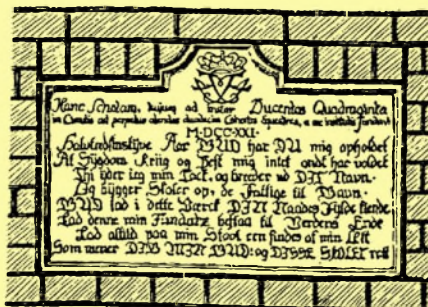 Hanc Scholam, hujus ad instar Ducentas Quadraginta
ad perpetuo alendas duodecim Cohortes Equestres, a me fundavi
M·DCC·XXI.
Halvtredsinstyve Aar GUD har DU mig opholdet
At Sygdom Kriig og Pest mig intet ondt har voldet
Thi yder ieg min Tack, og breeder ud DIT Navn.
Og bygger Skoler op, de Fattige til Gavn.
GUD lad i dette Værck DIN Naades Fylde kiende
Lad denne min Fundatz bestaa til Verdens Ende
Lad altid paa min Stool een findes af min Ætt
Som mener DIG MIN GUD: og DISSE SKOLER rett